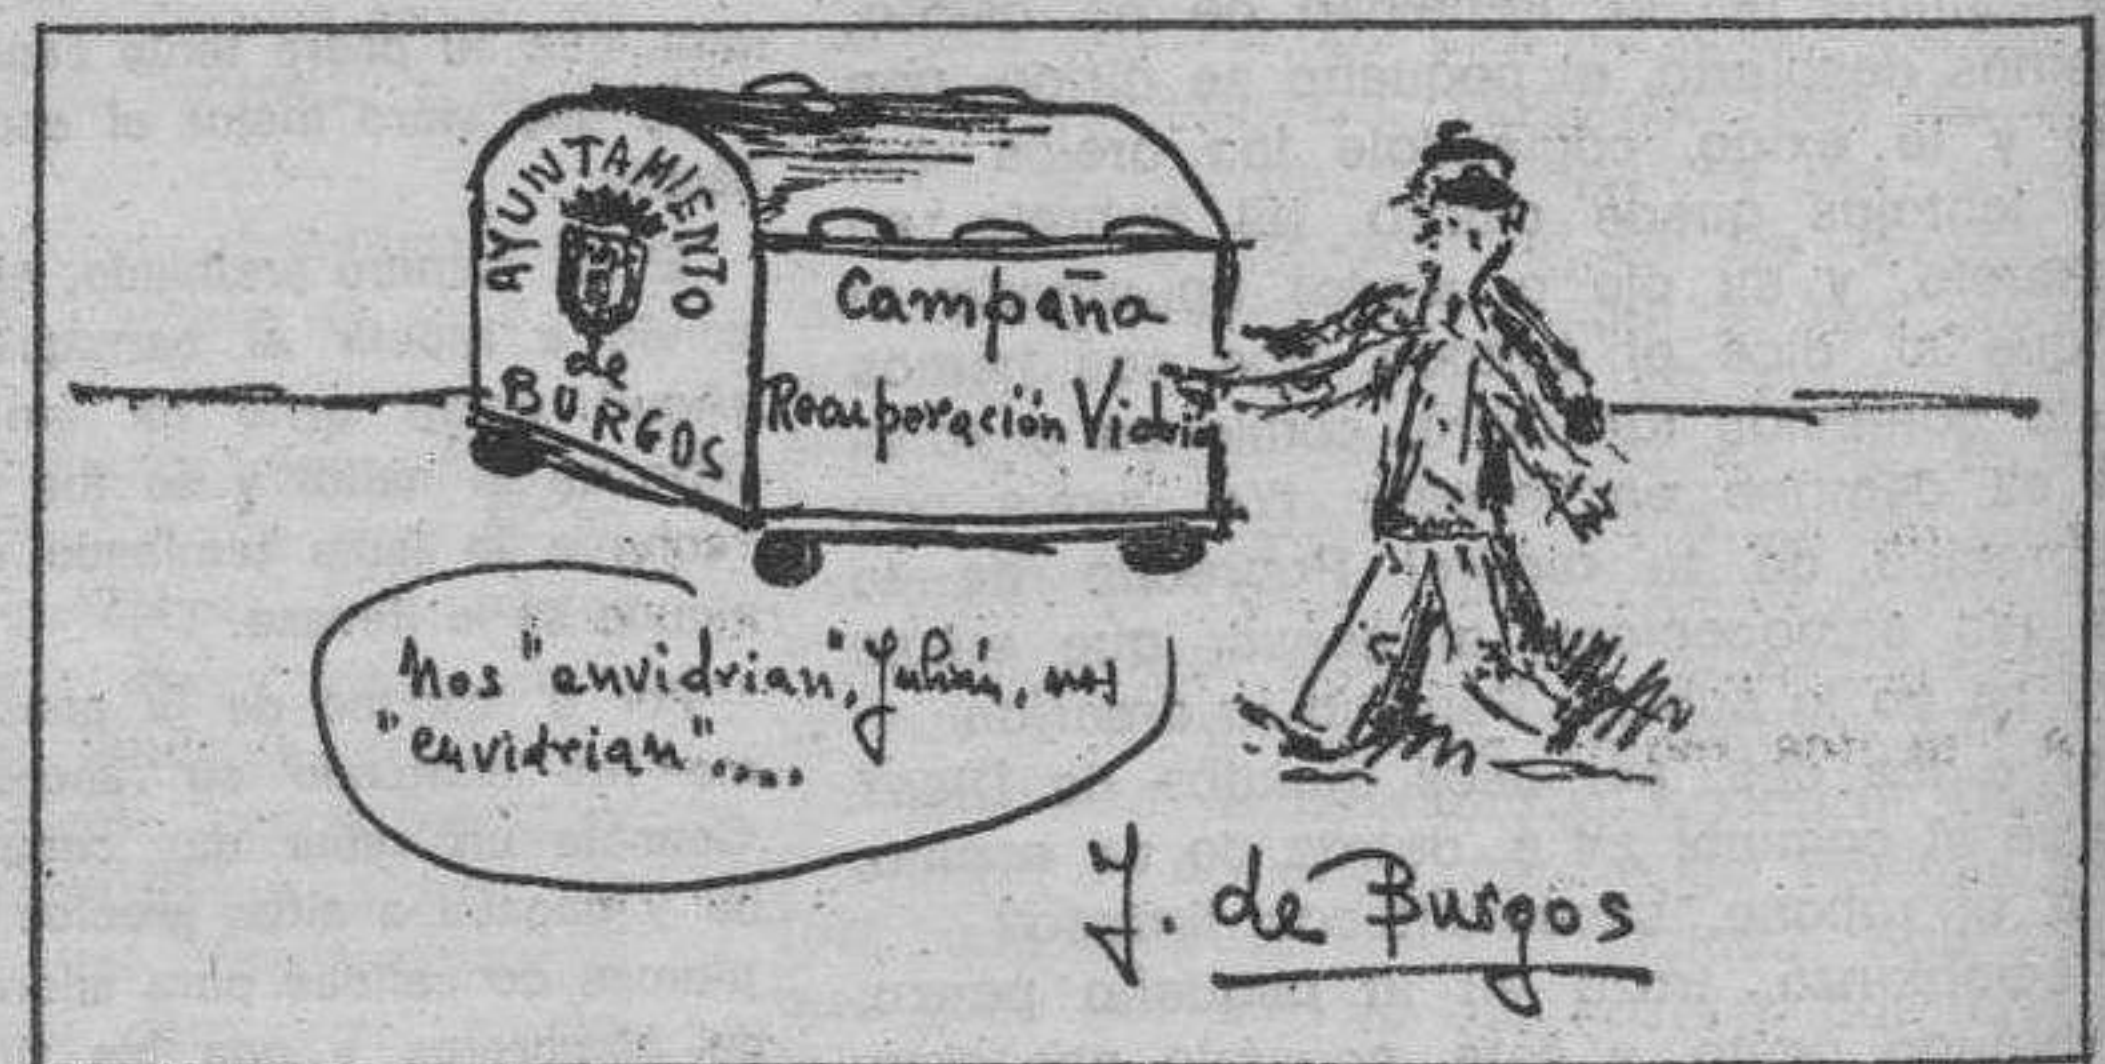 AYUNTAMIENTO
de
BURGOS
Campaña
Recuperación Vidrio
Nos "envidrian", Julián, nos
"envidrian"....
J. de Burgos